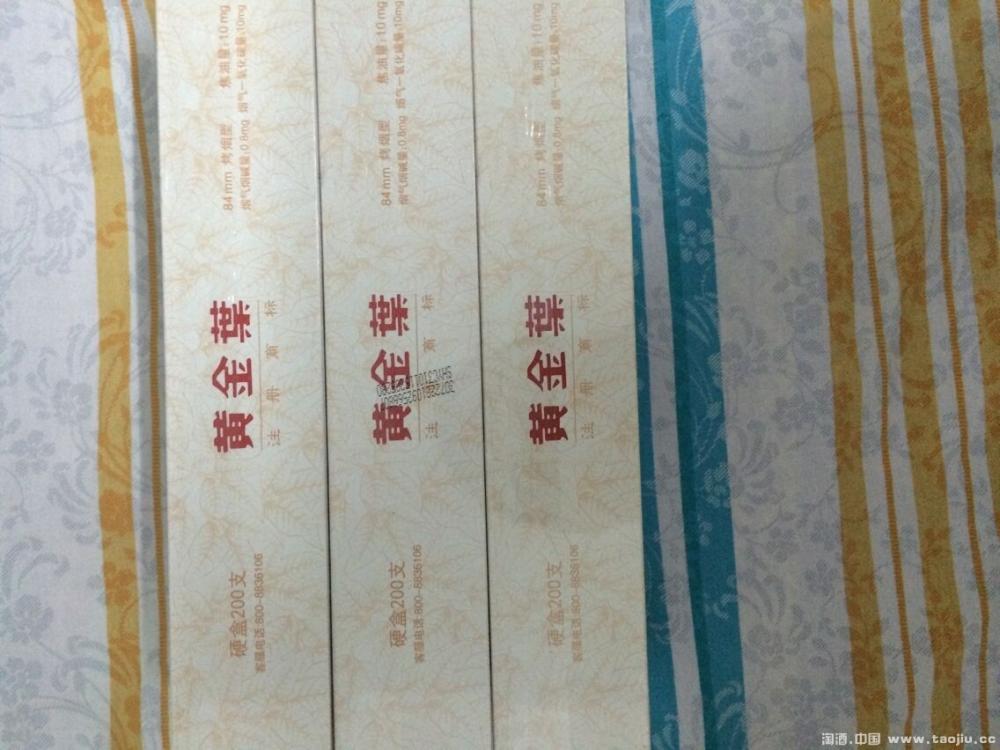 硬盒200支
客服电话:800-8836106
黄金葉
注册商标
84mm 烤烟型 焦油量:10mg
烟气烟碱量:0.8mg 烟气一氧化碳量:10mg
硬盒200支
客服电话:800-8836106
黄金葉
注册商标
84mm 烤烟型 焦油量:10mg
烟气烟碱量:0.8mg 烟气一氧化碳量:10mg
硬盒200支
客服电话:800-8836106
黄金葉
注册商标
84mm 烤烟型 焦油量:10mg
烟气烟碱量:0.8mg 烟气一氧化碳量:10mg
淘酒.中国 www.taojiu.cc